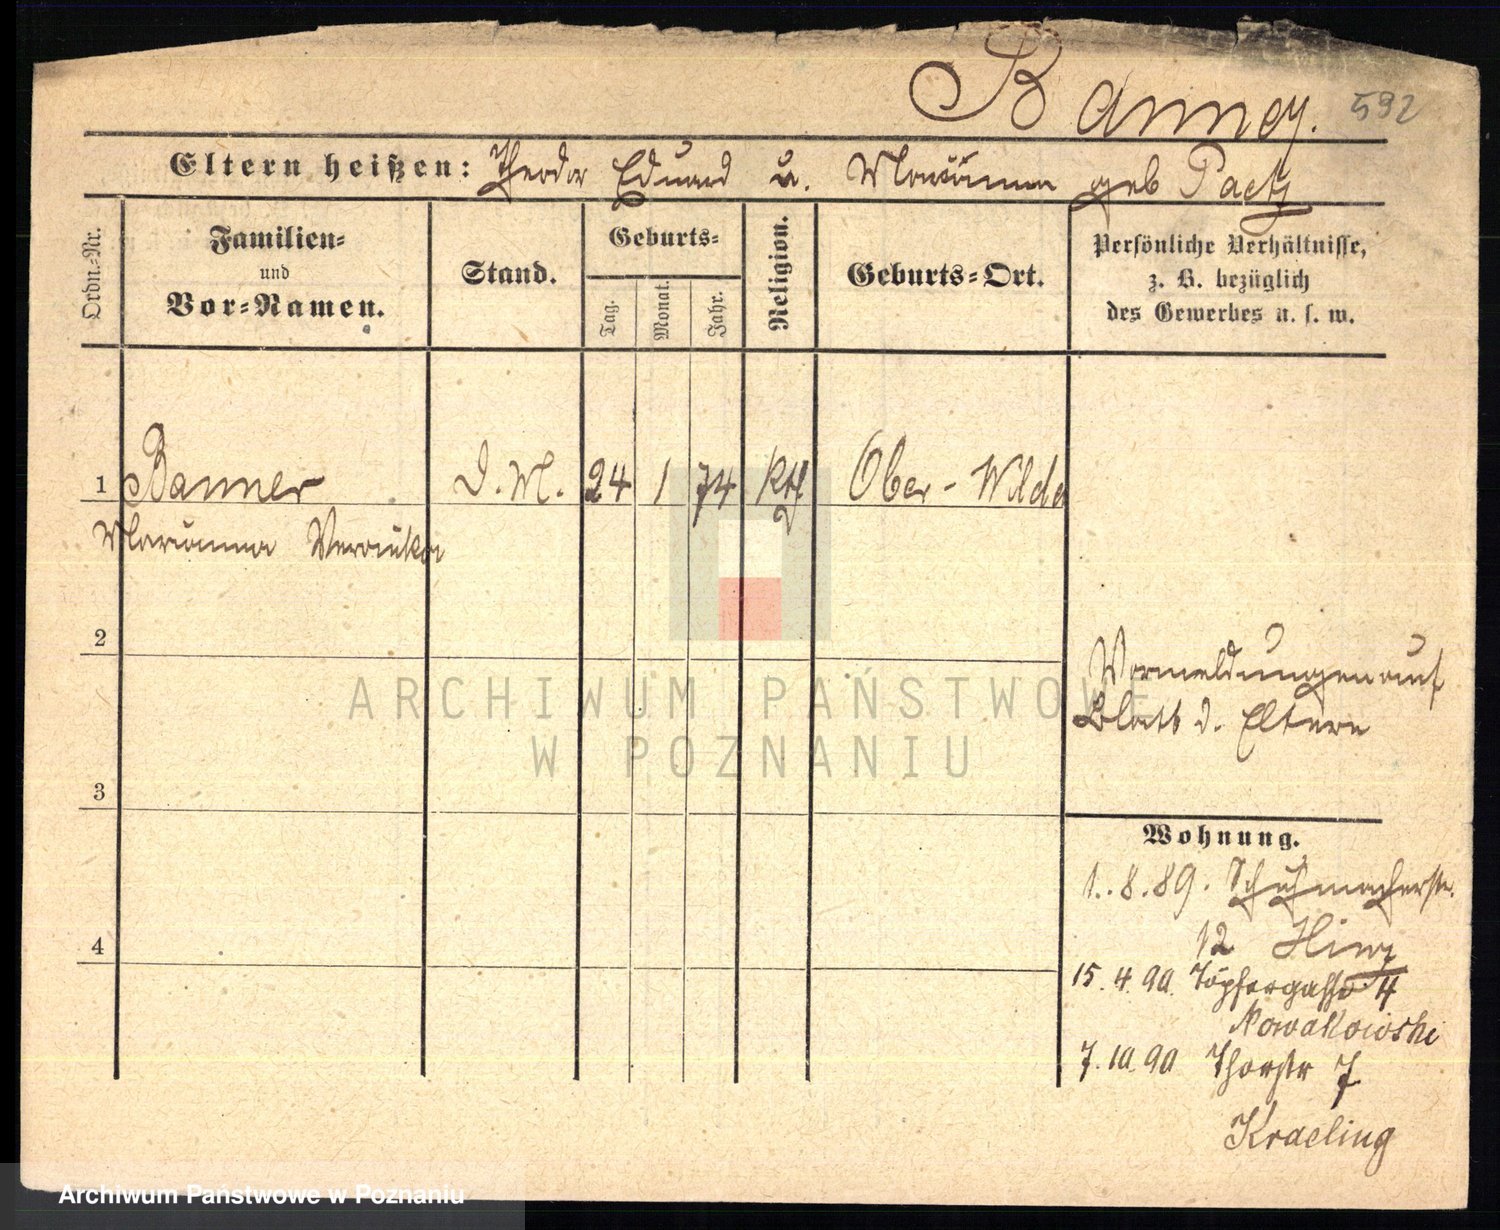 Banner.
592
Eltern heißen: Theodor Eduard u. Marianna geb Paetz
Ordn.-Nr.
Familien-
und
Vor-Namen.
Stand.
Geburts-
Tag.
Monat.
Jahr.
Religion.
Geburts-Ort.
Persönliche Verhältnisse,
z. B. bezüglich
des Gewerbes u. s. w.
1 Banner D. M. 24 1 74 kth Ober-Wilda
Marianna Veronika
2
Vormeldungen auf
Blatt d. Eltern
3
Wohnung.
1.8.89. Schuhmacherstr.
12
4
15.4.90. Töpfergasse 4
Nowakowski
7.10.90 Thorstr 7
Kraeling
ARCHIWUM PAŃSTWOWE
W POZNANIU
Archiwum Państwowe w Poznaniu